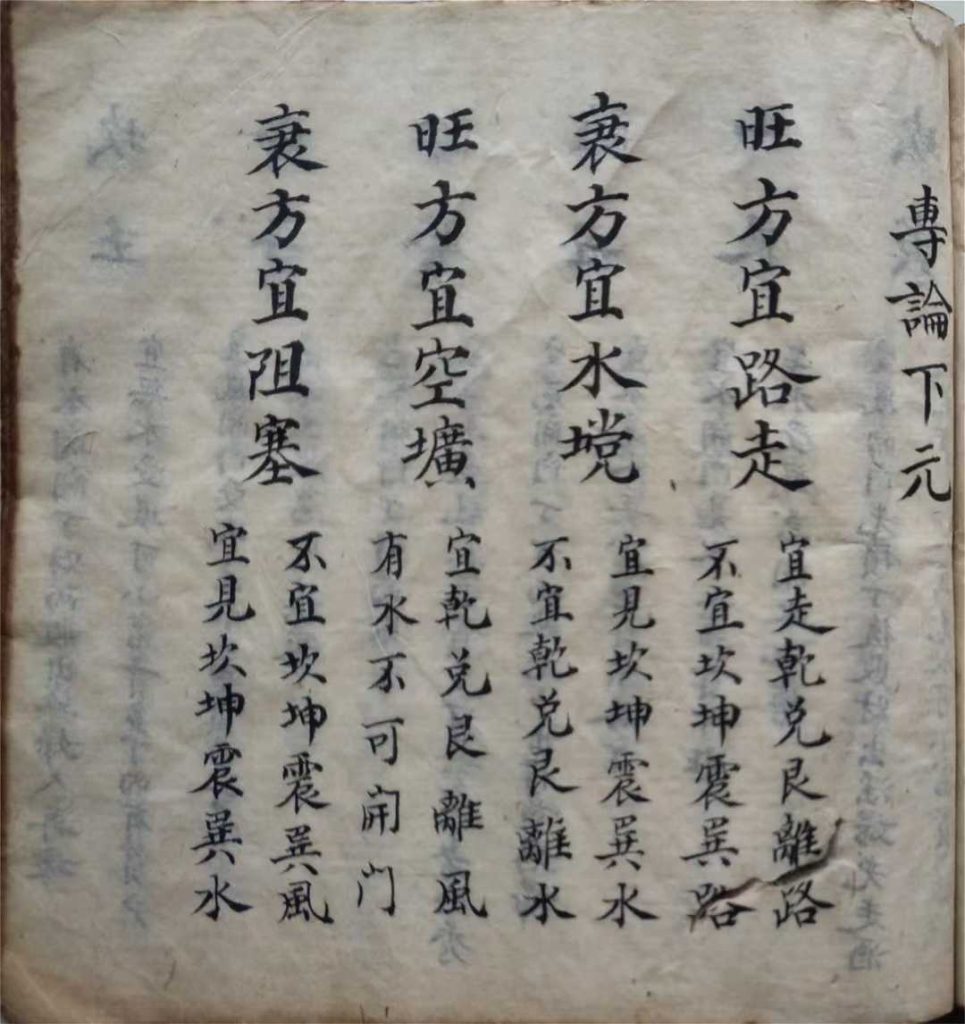 專論下元
旺方宜路走
宜走乾兌艮離路
不宜坎坤震巽路
衰方宜水塘
宜見坎坤震巽水
不宜乾兌艮離水
旺方宜空壙
宜乾兌艮離風
有水不可開門
衰方宜阻塞
不宜坎坤震巽風
宜見坎坤震巽水